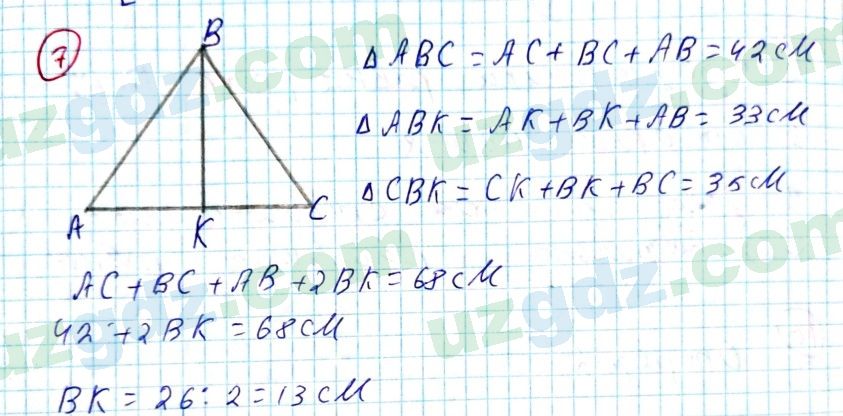 7
B
A
K
C
Δ ABC = AC + BC + AB = 42 см
Δ ABK = AK + BK + AB = 33 см
Δ CBK = CK + BK + BC = 35 см
AC + BC + AB + 2BK = 68 см
42 + 2BK = 68 см
BK = 26 : 2 = 13 см
uzgdz.com
uzgdz.com
uzgdz.com
uzgdz.com